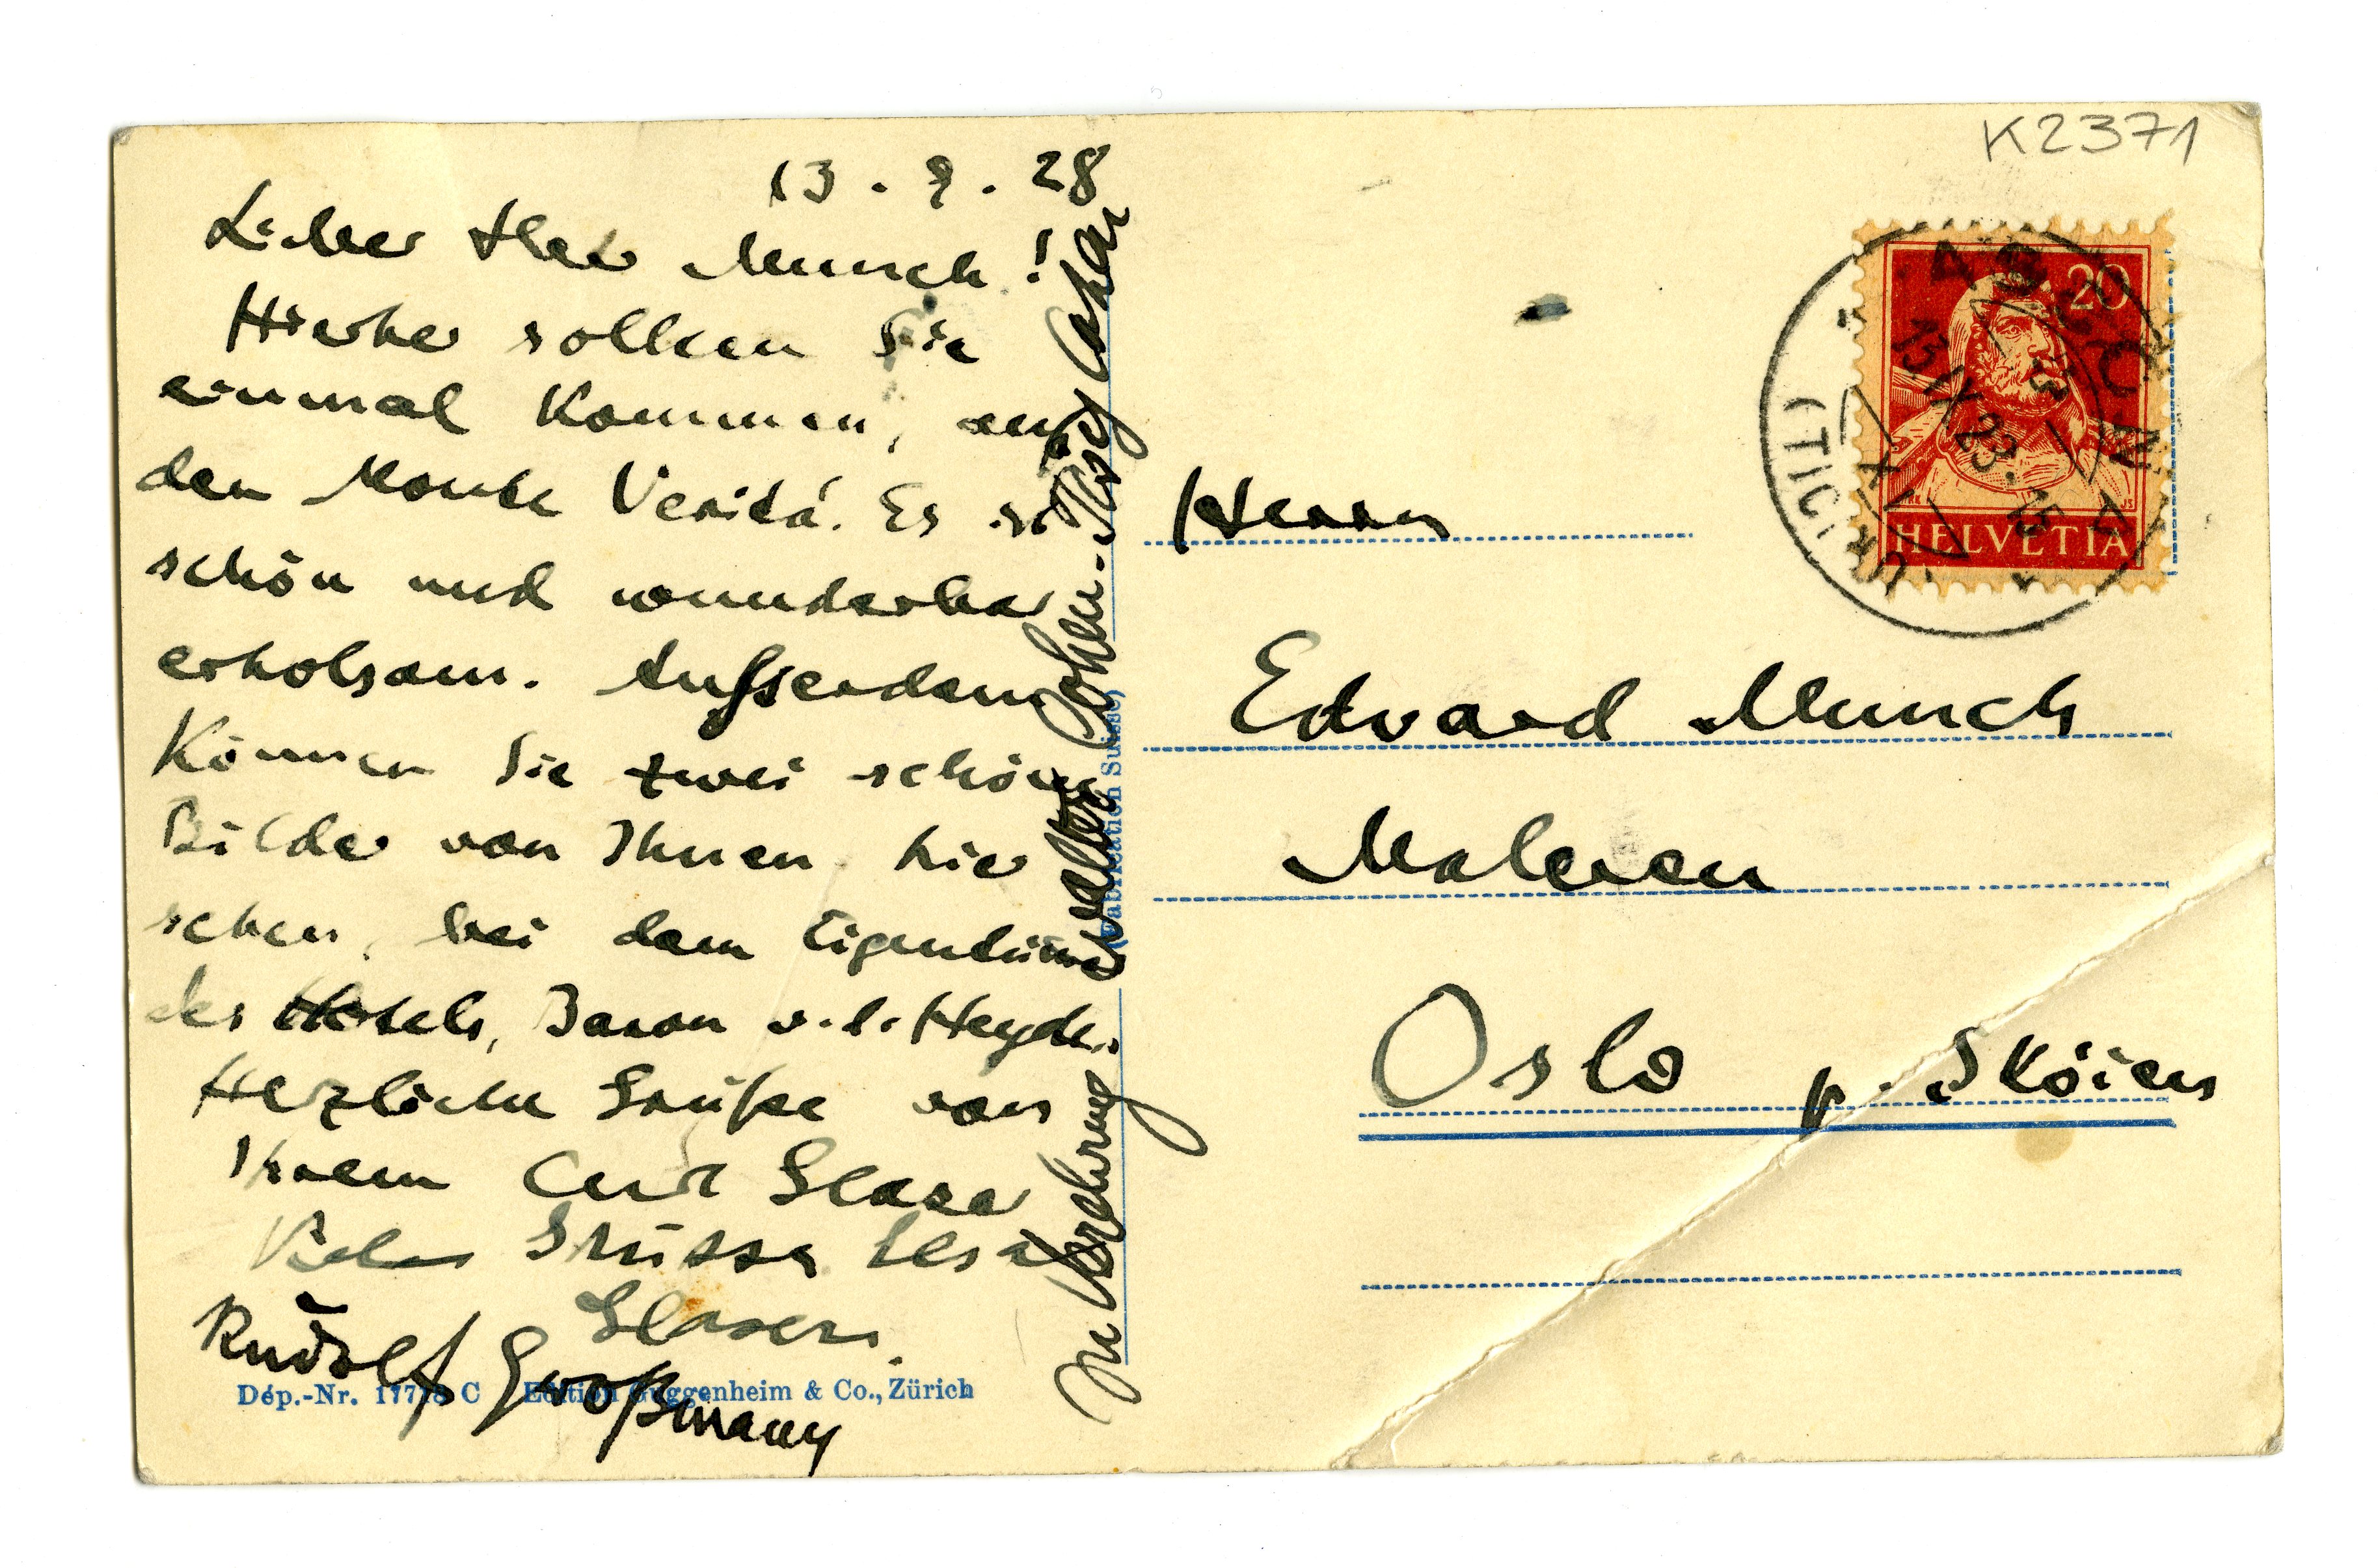 13. 9. 28
Lieber Herr Munch!
Hierher sollten Sie
einmal kommen, auf
den Monte Verità. Es ist
schön und wunderbar
erholsam. Aufserdem
können Sie zwei schöne
Bilder von Ihnen hier
sehen, bei dem Eigentümer
des Hotels, Baron v. d. Heydt.
Herzliche Grüße von
Ihrem Curt Glaser
Viele Grüsse Elsa
Glaser.
Rudolf Großmann
Dép.-Nr. C Edition Guggenheim & Co., Zürich
In Verehrung Walter Cohen.
Fabrication Suisse
K2371
20
HELVETIA
ASCONA
13 IX 28-15
(TICINO)
Herrn
Edvard Munch
Maleren
Oslo p. Sköien